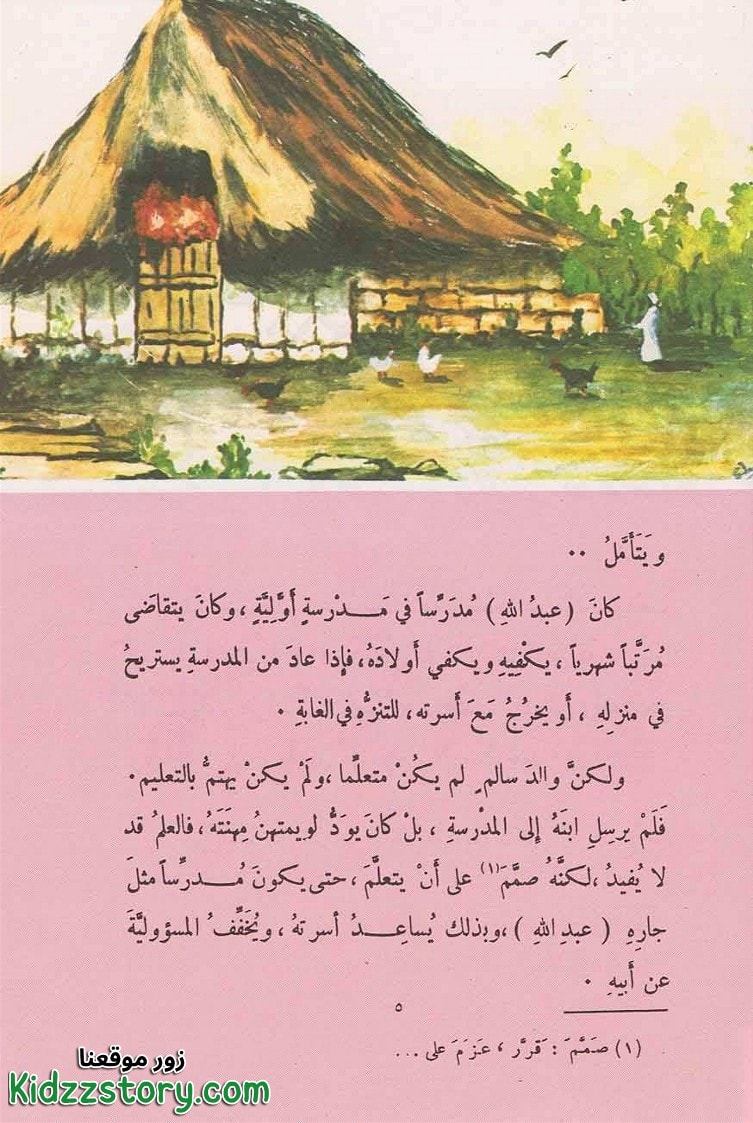 ويَتَأَمَّلُ ..
كانَ (عبدُ اللهِ) مُدَرِّساً في مَـدْرسةٍ أوَّلِيَّةٍ ، وكانَ يتقاضى
مُرَتَّباً شهرياً ، يكْفِيهِ ويكفي أولادَهُ، فإذا عادَ من المدرسةِ يستريحُ
في منزلِهِ ، أو يخرُجُ مَعَ أسرته، للتنزُّهِ في الغابةِ .
ولكنَّ والدَ سالمٍ لم يكُنْ متعلِّما ،ولَمْ يكنْ يهتمُّ بالتعليم.
فَلَمْ يرسِلِ ابنَهُ إلى المدْرسةِ ، بلْ كانَ يوَدُّ لو يمتهنُ مِهنَتَهُ، فالعلمُ قد
لا يُفيدُ ،لكنَّهُ صمَّمَ(١) على أَنْ يتعلَّمَ ،حتى يكونَ مُـدرِّساً مثلَ
جارِهِ ( عبدِ اللهِ ) ،وبذلك يُساعِـدُ أسرتهُ ، ويُخَفِّفُ المسؤوليَّةَ
عن أبيهِ .
٥
(١) صَمَّمَ : قرَّر ، عَزَمَ على ...
زور موقعنا
Kidzzstory.com